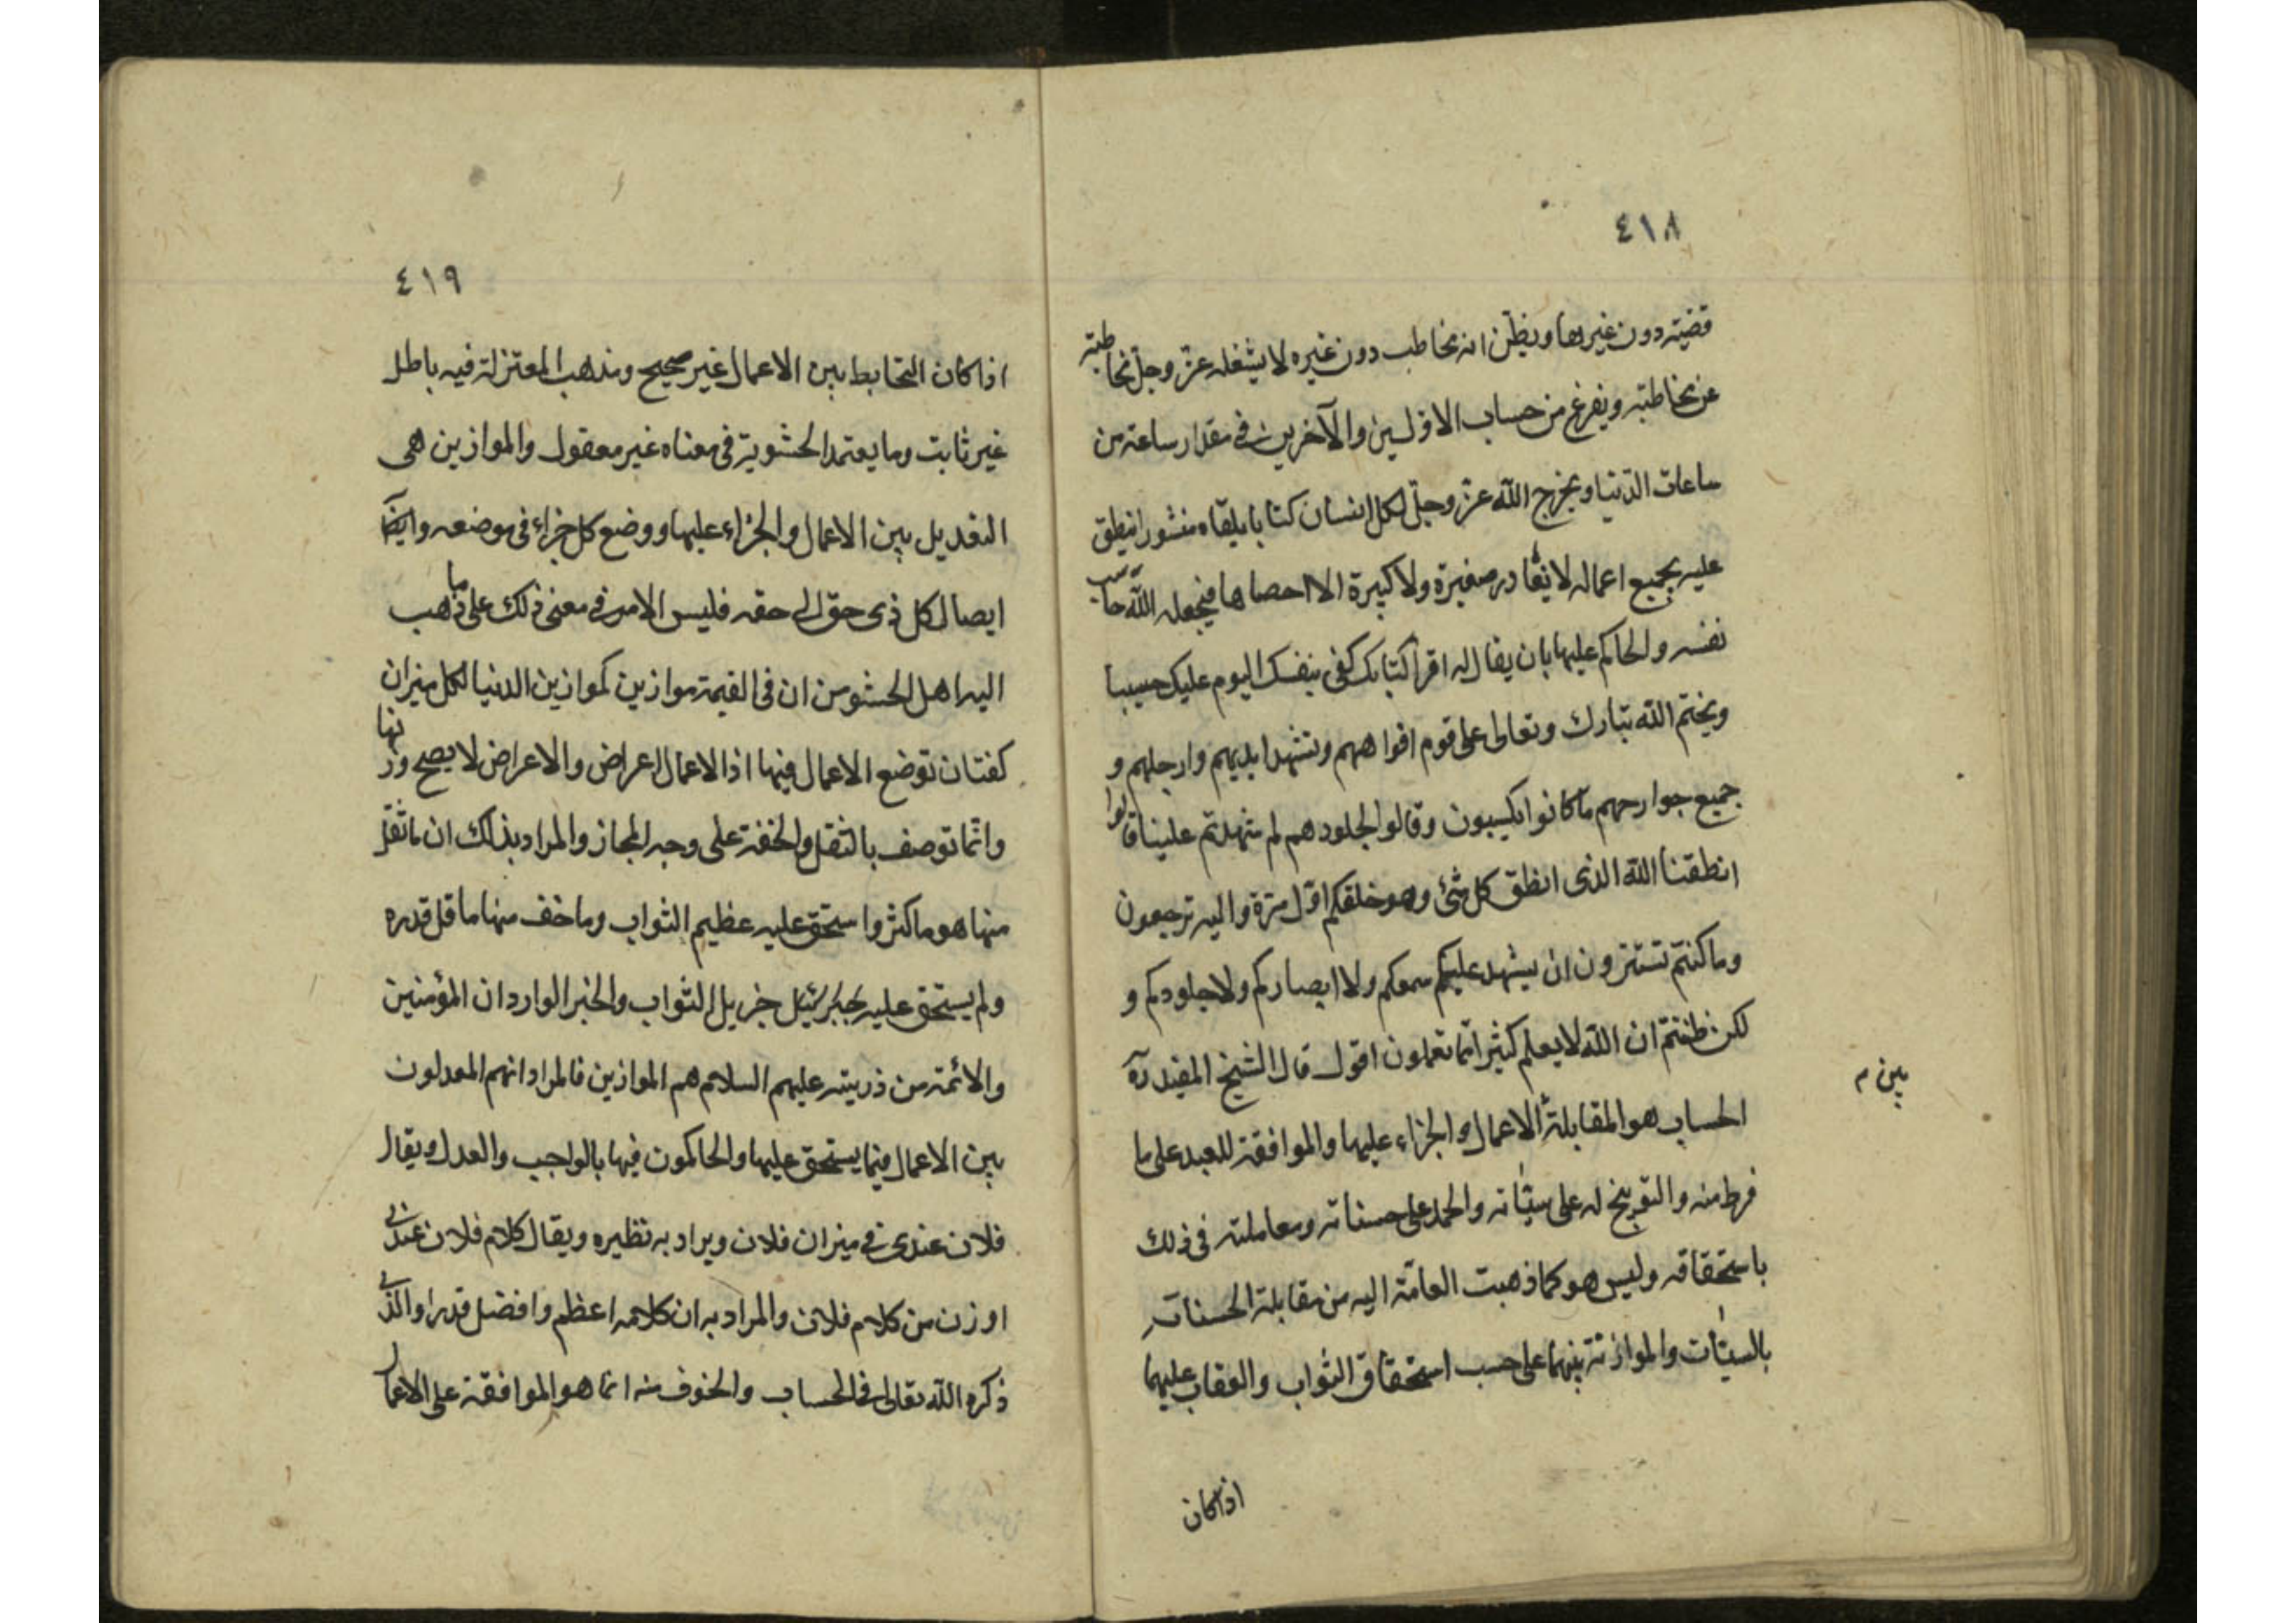 ٤١٨
قضيته دون غيرها ويظن انه مخاطب دون غيره لا يشغله عز وجل مخاطبته
عن مخاطبته ويفرغ من حساب الاولين والآخرين في مقدار ساعة من
ساعات الدنيا ويخرج الله عز وجل لكل انسان كتابا يلقاه منشورا ينطق
عليه بجميع اعماله لا يغادر صغيرة ولا كبيرة الا احصاها فيجعله الله حاسب
نفسه والحاكم عليها بان يقال له اقرأ كتابك كفى بنفسك اليوم عليك حسيبا
ويختم الله تبارك وتعالى على قوم افواههم وتشهد ايديهم وارجلهم و
جميع جوارحهم بما كانوا يكسبون وقالوا لجلودهم لم شهدتم علينا قالوا
انطقنا الله الذى انطق كل شئ وهو خلقكم اول مرة واليه ترجعون
وما كنتم تستترون ان يشهد عليكم سمعكم ولا ابصاركم ولا جلودكم و
لكن ظننتم ان الله لا يعلم كثيرا مما تعملون اقول قال الشيخ المفيد ره
الحساب هو المقابلة الاعمال والجزاء عليها والموافقة للعبد على ما
بين م
فرط منه والتوبيخ له على سيئاته والحمد على حسناته ومعاملته فى ذلك
باستحقاقه وليس هو كما ذهبت العامة اليه من مقابلة الحسنات
بالسيئات والموازنة بينهما على حسب استحقاق الثواب والعقاب عليهما
اذا كان
٤١٩
اذا كان التحابط بين الاعمال غير صحيح ومذهب المعتزلة فيه باطل
غير ثابت وما يعتمد الحشوية فى معناه غير معقول والموازين هى
التعديل بين الاعمال والجزاء عليها ووضع كل جزاء فى موضعه وايضا
ايصال كل ذى حق الى حقه فليس الامر فى معنى ذلك على ما ذهب
اليه اهل الحشو من ان فى القيمة موازين كموازين الدنيا لكل ميزان
كفتان توضع الاعمال فيها اذ الاعمال اعراض والاعراض لا يصح وزنها
وانما توصف بالثقل والخفة على وجه المجاز والمراد بذلك ان ما ثقل
منها هو ما كثر واستحق عليه عظيم الثواب وما خف منها ما قل قدره
ولم يستحق عليه جزيل الثواب والخبر الوارد ان المؤمنين
والائمة من ذريته عليهم السلام هم الموازين فالمراد انهم المعدلون
بين الاعمال فيما يستحق عليها والحاكمون فيها بالواجب والعدل ويقال
فلان عندى في ميزان فلان ويراد به نظيره ويقال كلام فلان عندى
اوزن من كلام فلان والمراد به ان كلامه اعظم وافضل قدرا والذى
ذكره الله تعالى فى الحساب والخوف منه انما هو الموافقة على الاعمال